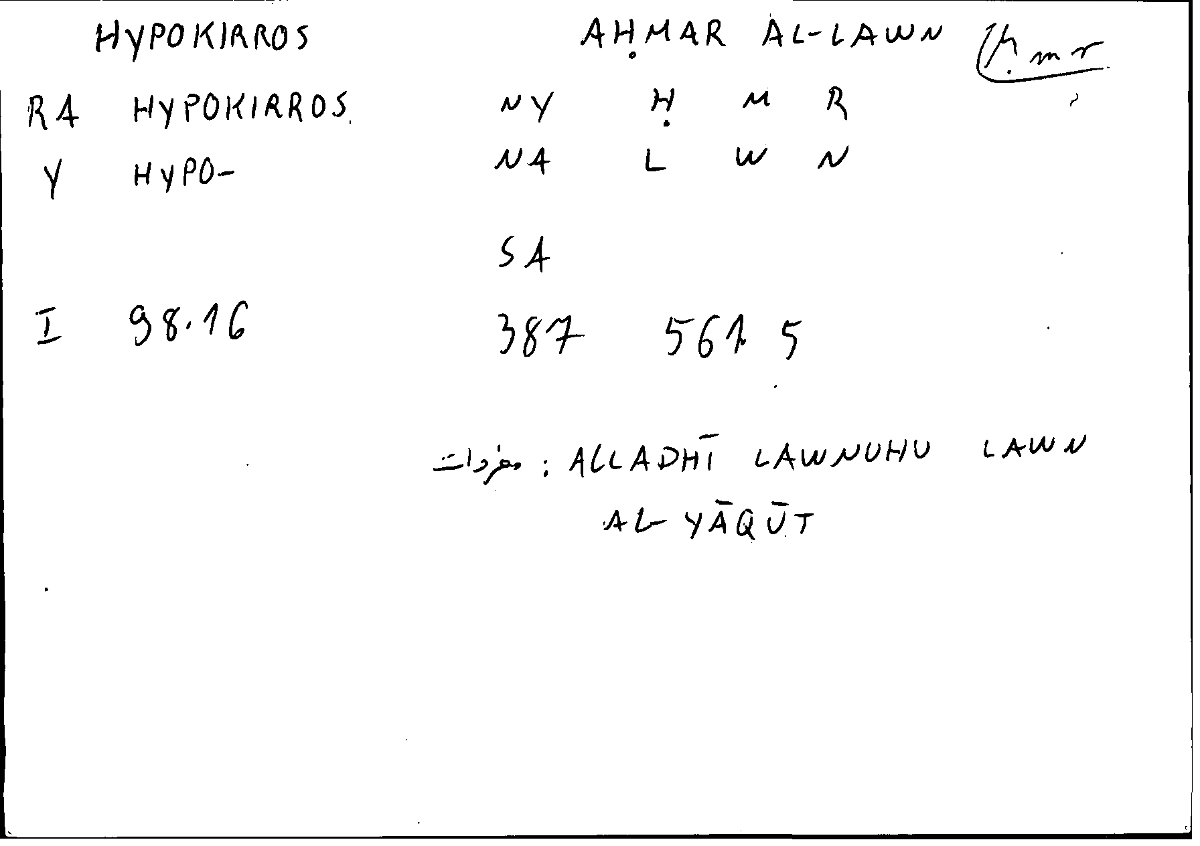 HYPOKIRROS AḤMAR AL-LAWN ḥmr
RA HYPOKIRROS NY Ḥ M R
Y HYPO- NA L W N
SA
I 98.16 387 561 5
مفردات : ALLADHĪ LAWNUHU LAWN
AL-YĀQŪT